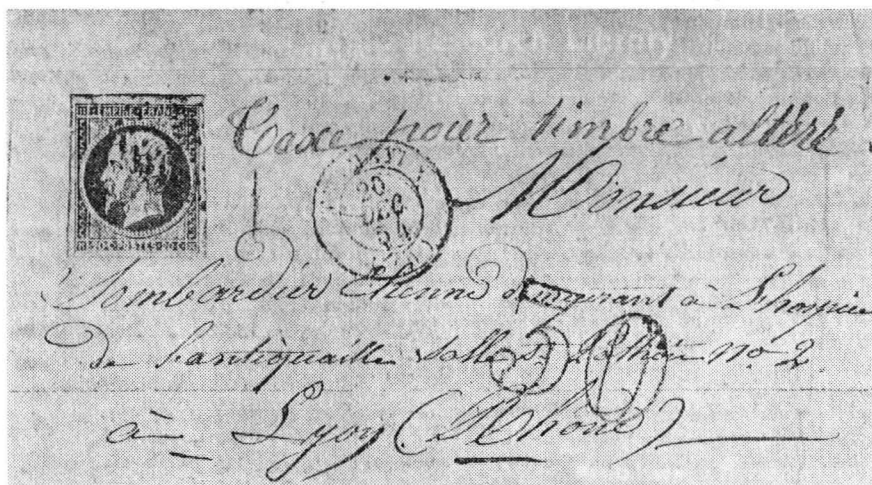 EMPIRE FRANC
Taxe pour timbre altéré.
20
DEC
54
Monsieur
Lombardier Etienne demeurant à L'hospice
de Lantiquaille Salle St no 2
30
à Lyon (Rhône)